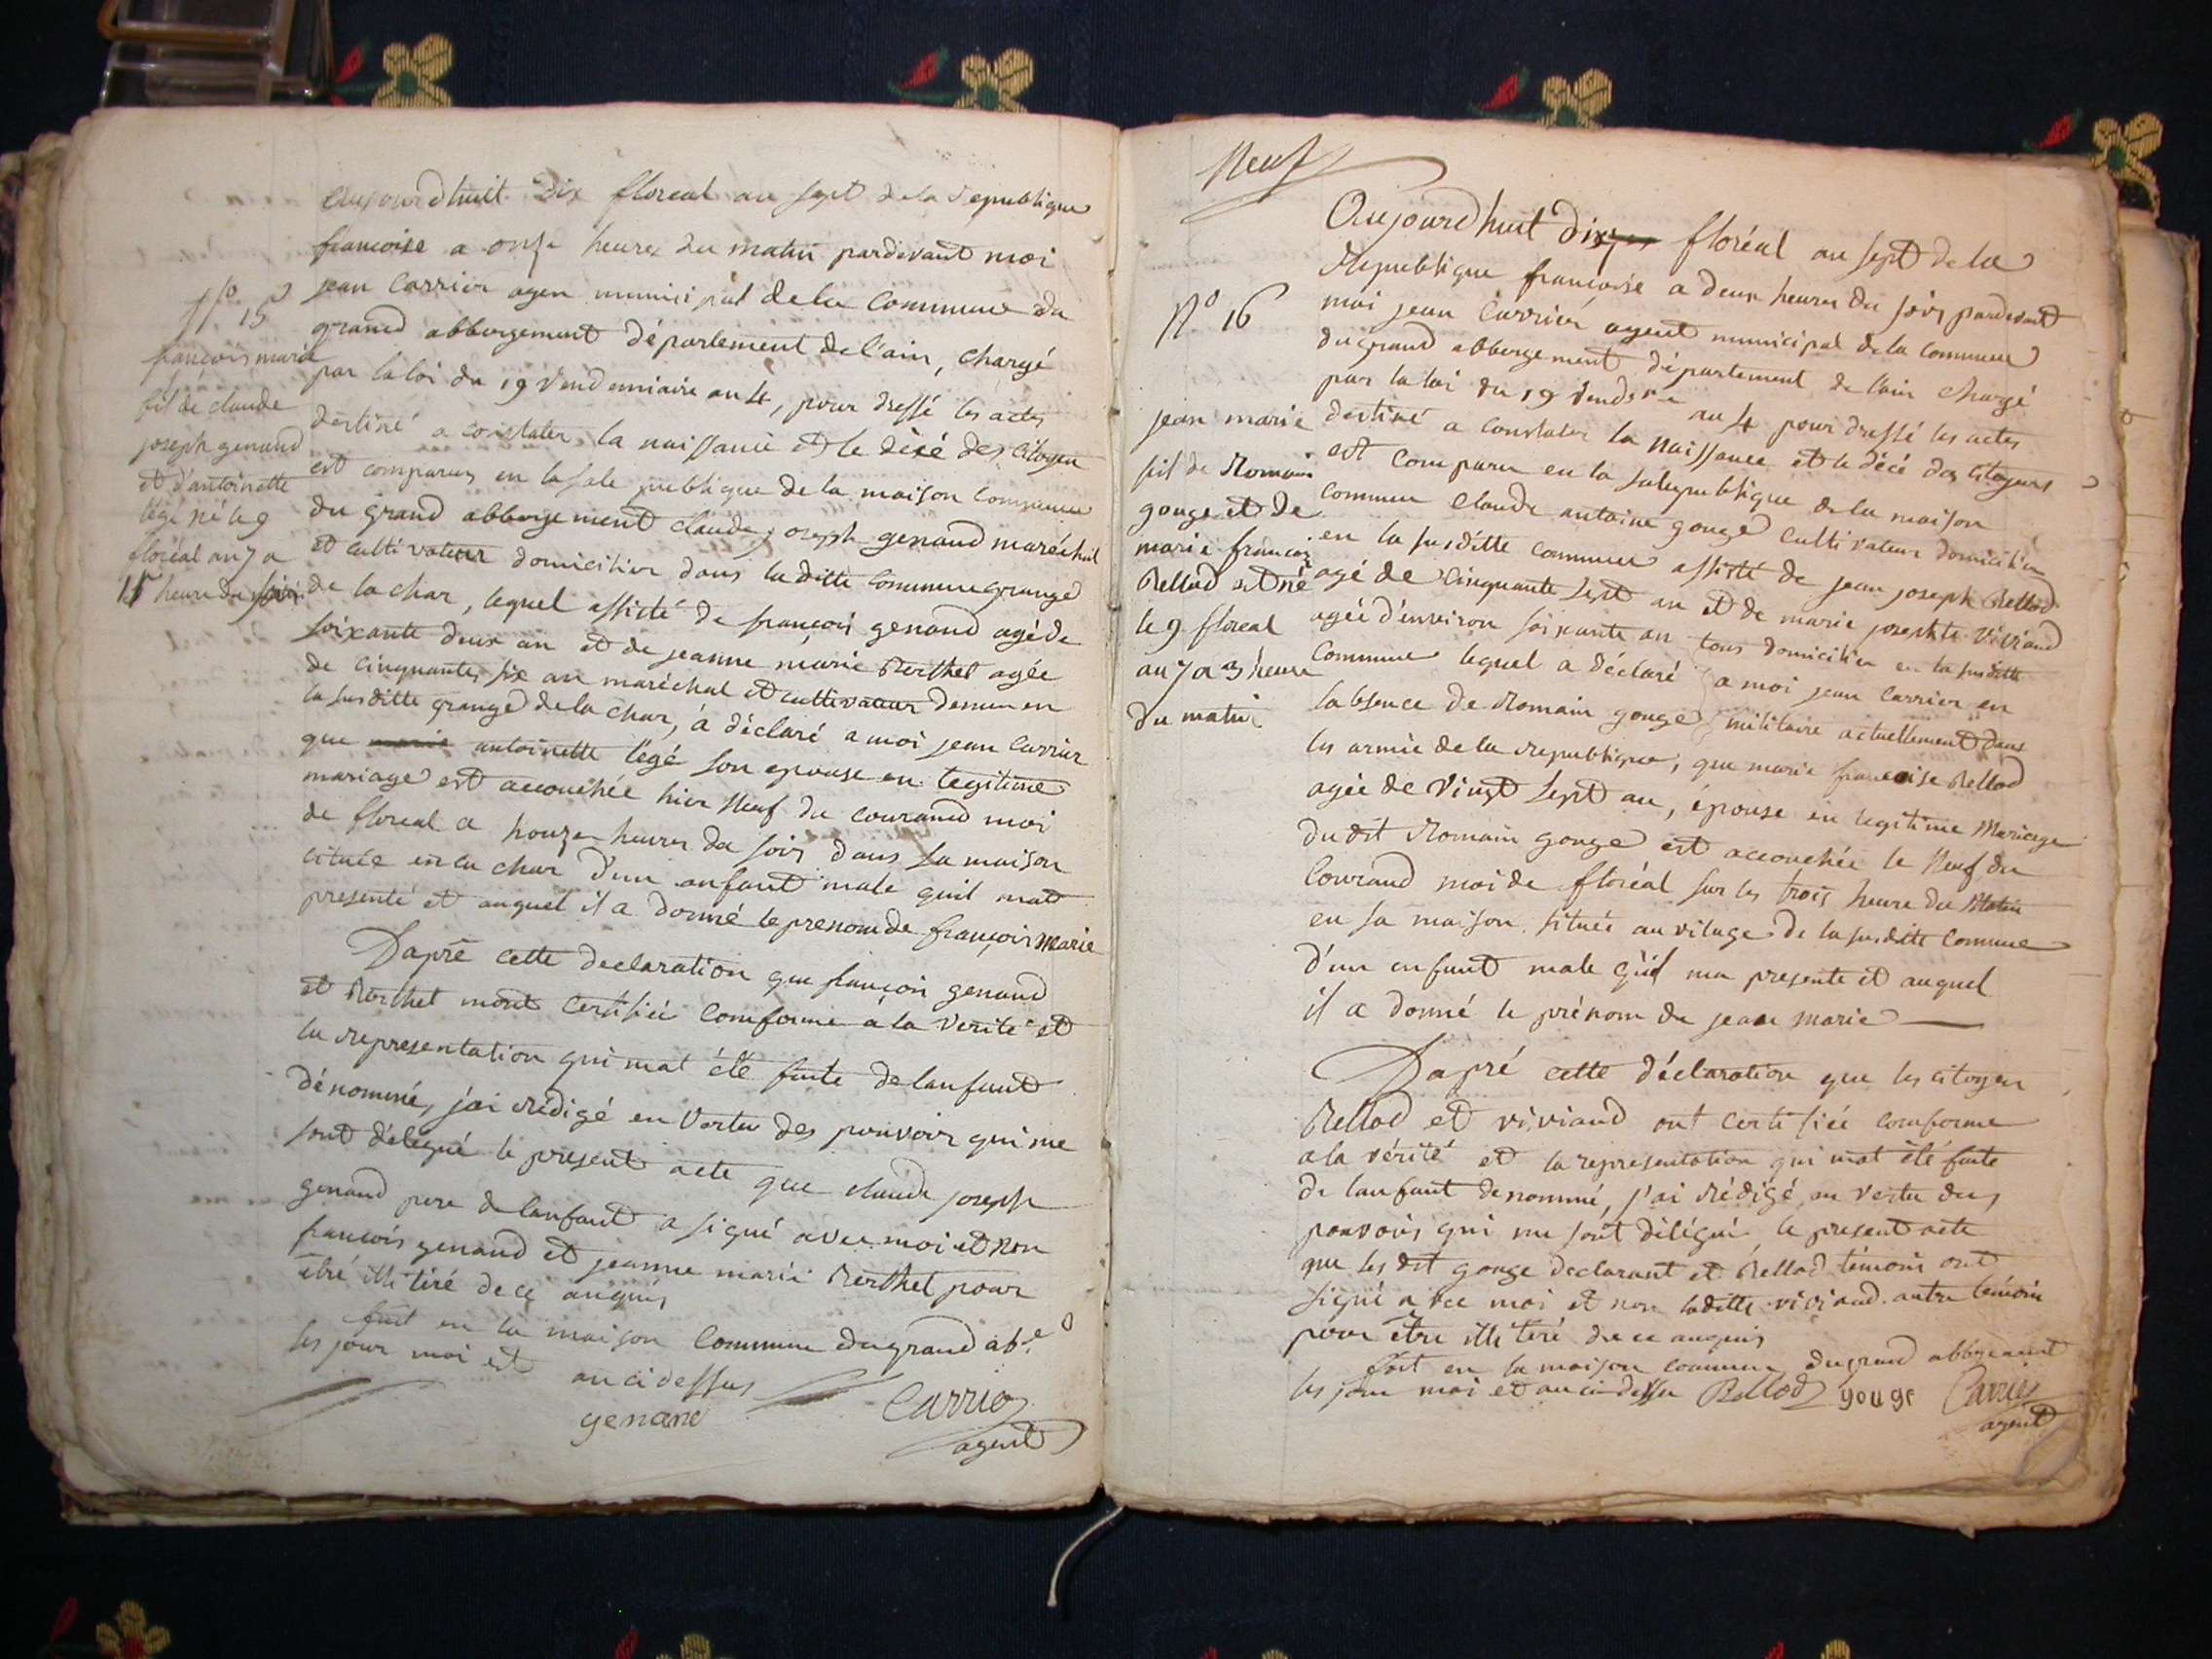 aujourdhuit dix floreal an sept de la republique
francoise a onze heures du matin pardevant moi
jean Carrier agen municipal de la Commune du
grand abbergement département de l'ain, chargé
par la loi du 19 vendemiaire an 4, pour dressé les actes
destiné a constater la naissance et le décé des citoyen
est comparus en la sale publique de la maison commune
du grand abbergement claude joseph genand maréchal
et cultivateur domicilier dans la ditte commune grange
de la char, lequel assisté de françois genand agé de
soixante deux an et de jeanne marie Berthet agée
de cinquante six an maréchal et cultivateur demeuren
la susditte grange de la char, à déclaré a moi jean Carrier
que marie antoinette légé son epouse en legitime
mariage est accouchée hier neuf du courand moi
de floreal a honze heures du soir dans sa maison
cituée en la char d'un enfant male quil mat
presenté et auquel il a donné le prenom de françois marie
Dapré cette declaration que françois genand
et Berthet mont certifiée comforme a la verité et
la representation qui mat été faite de lanfant
dénommé, j'ai rédigé en vertu des pouvoir qui me
sont délegué le present acte que claude joseph
genand pere de lanfant a signé avec moi et non
françois genand et jeanne marie Berthet pour
etré illitéré de ce anquis
fait en la maison commune du grand ab.e
les jour moi et an ci dessus
genand Carrier
agent
No 15
françois marie
fil de claude
joseph genand
et d'antoinette
légé né le 9
floréal an 7 a
11 heure du soir
Neuf
Aujourdhuit dix floréal an sept de la
Republique francoise a deux heures du soir pardevant
moi jean Carrier agent municipal de la commune
du grand abbergement département de l'ain chargé
par la loi du 19 vend.re an 4 pour dressé les actes
destiné a constater la naissance et le décé des citoyens
est comparu en la sale publique de la maison
commune Claude antoine gouge cultivateur domicilier
en la susditte commune assisté de jean joseph Bellod
agé de cinquante sept an et de marie josephte viviand
agée d'environ soixante an tous domicilier en la susditte
commune lequel a déclaré a moi jean Carrier en
labsence de Romain gouge militaire actuellement dans
les armée de la republique, que marie francoise Bellod
agée de vingt sept an, épouse en legitime Mariage
du dit Romain gouge est accouchée le Neuf du
Courand moi de floréal sur les trois heure du Matin
en sa maison située au vilage de la susditte Commune
d'un enfant male quil ma presenté et auquel
il a donné le prénom de jean marie
Dapré cette déclaration que les citoyen
Bellod et viviand ont certifiée comforme
a la vérité et la representation qui mat été faite
de lanfant denommé, j'ai rédigé en vertu des
pouvoirs qui me sont délégué le present acte
que les dit gouge declarant et Bellod témoin ont
signé avec moi et non laditte viviand autre témoin
pour être illitéré de ce anquis
fait en la maison commune du grand abbergement
les jour moi et an ci dessu Bellod gouge Carrier
agent
No 16
jean marie
fil de Romain
gouge et de
marie françoise
Bellod est né
le 9 floreal
an 7 a 3 heure
du matin